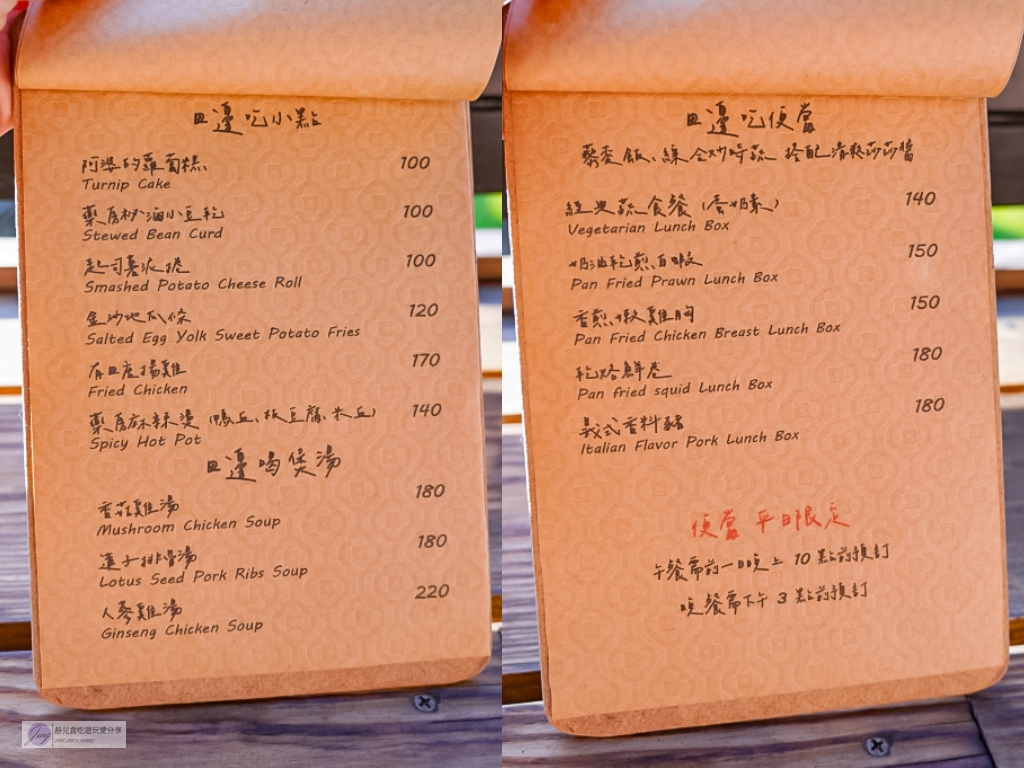 田邊吃小點
阿婆的蘿蔔糕 100
Turnip Cake
藥房秘滷小豆乾 100
Stewed Bean Curd
起司薯泥捲 100
Smashed Potato Cheese Roll
金沙地瓜條 120
Salted Egg Yolk Sweet Potato Fries
有田庄揚雞 170
Fried Chicken
藥房麻辣燙 (鴨血、板豆腐、米血) 140
Spicy Hot Pot
田邊喝煲湯
香菇雞湯 180
Mushroom Chicken Soup
蓮子排骨湯 180
Lotus Seed Pork Ribs Soup
人蔘雞湯 220
Ginseng Chicken Soup
靜兒貪吃遊玩愛分享
田邊吃便當
藜麥飯、綜合炒時蔬 搭配清爽莎莎醬
經典蔬食餐 (蛋奶素) 140
Vegetarian Lunch Box
奶油乾煎白蝦 150
Pan Fried Prawn Lunch Box
香煎嫩雞胸 150
Pan Fried Chicken Breast Lunch Box
乾烙鮮卷 180
Pan fried squid Lunch Box
義式香料豬 180
Italian Flavor Pork Lunch Box
便當平日限定
午餐需前一日晚上 10 點前預訂
晚餐需下午 3 點前預訂